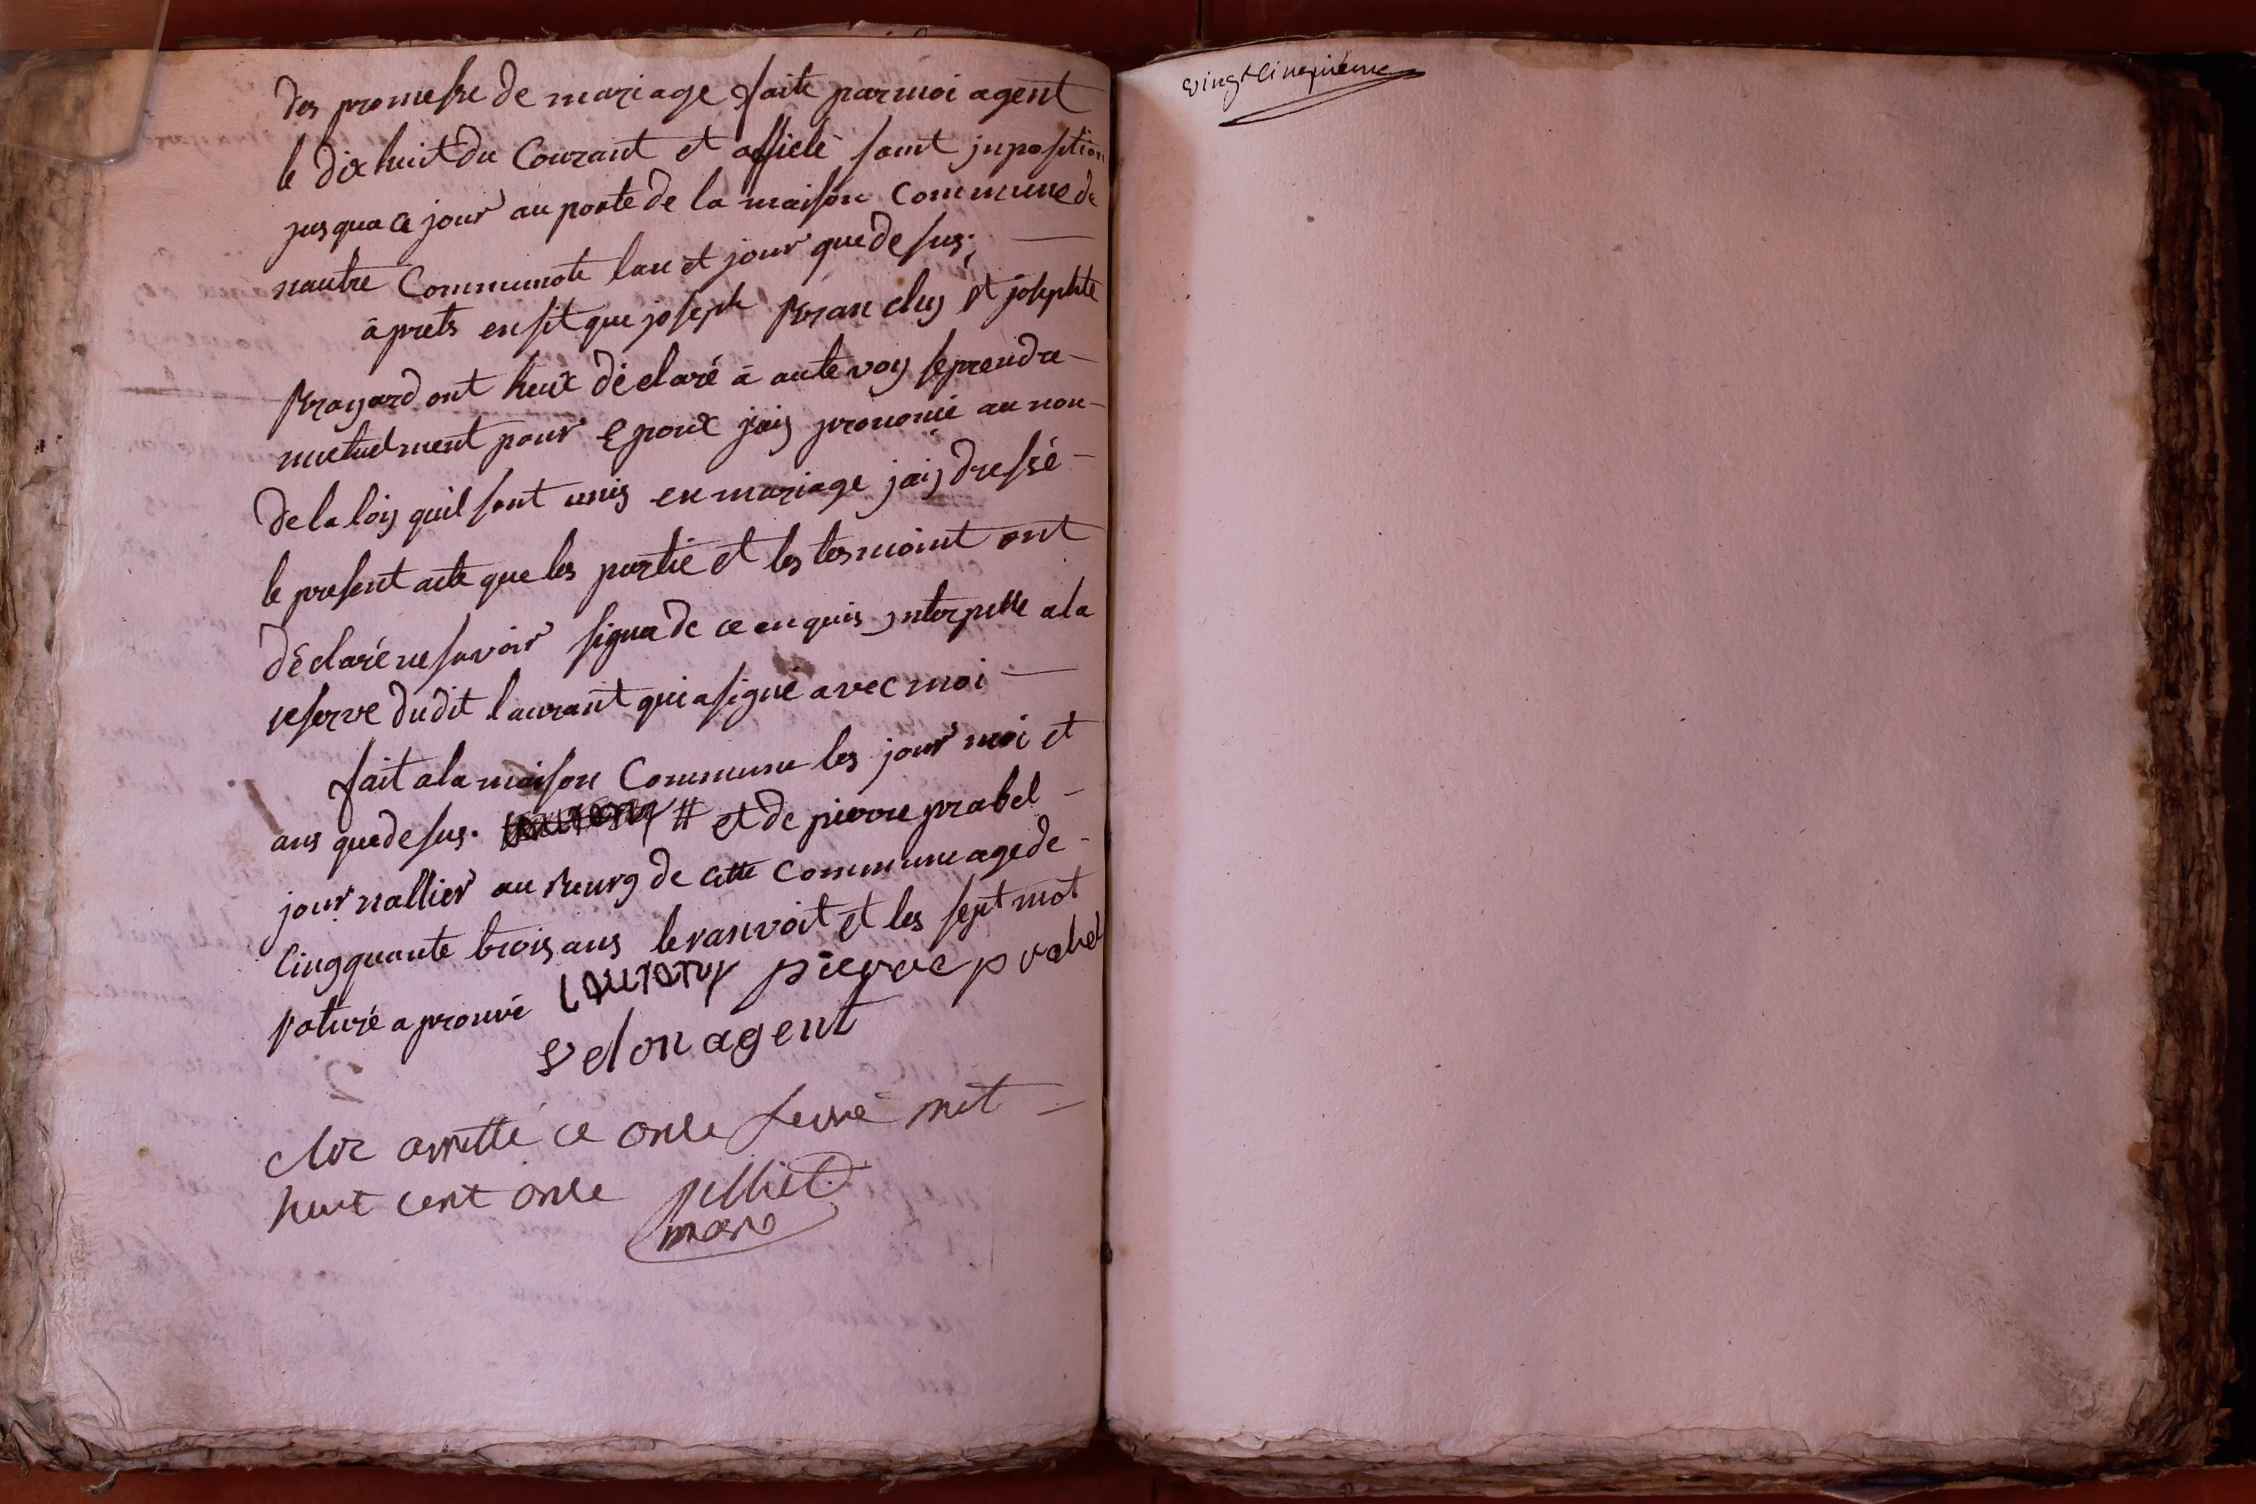 des promesse de mariage faite par moi agent
le dix huit du Courant et affiché sant jnposition
jusqua ce jour au porte de la maison Commune de
nautre Communote lan et jour que desus.
àprets ensit que joseph Branchuy et josephte
Brayard ont heux déclaré à aute voy se prendre
mutuelment pour Epoux jaiy prononcé au non
de la loiy quil sont uniy en mariage jaiy dressé
le present acte que les partie et les tesmoint ont
déclaré ne savoir signer de ce enquis jnterpelle a la
reserve dudit laurant qui a signé avec moi
fait a la maison Commune les jour moi et
ans que desus. # et de pierre prabel
journallier au bourg de cette Commune age de
Cinqquante trois ans le ranvoit et les sept mot
raturé aprouvé pierre prabel
velon agent
clos arretté ce onse fevrié mil
huit cent onse pilliet
mare
vingtcinquième